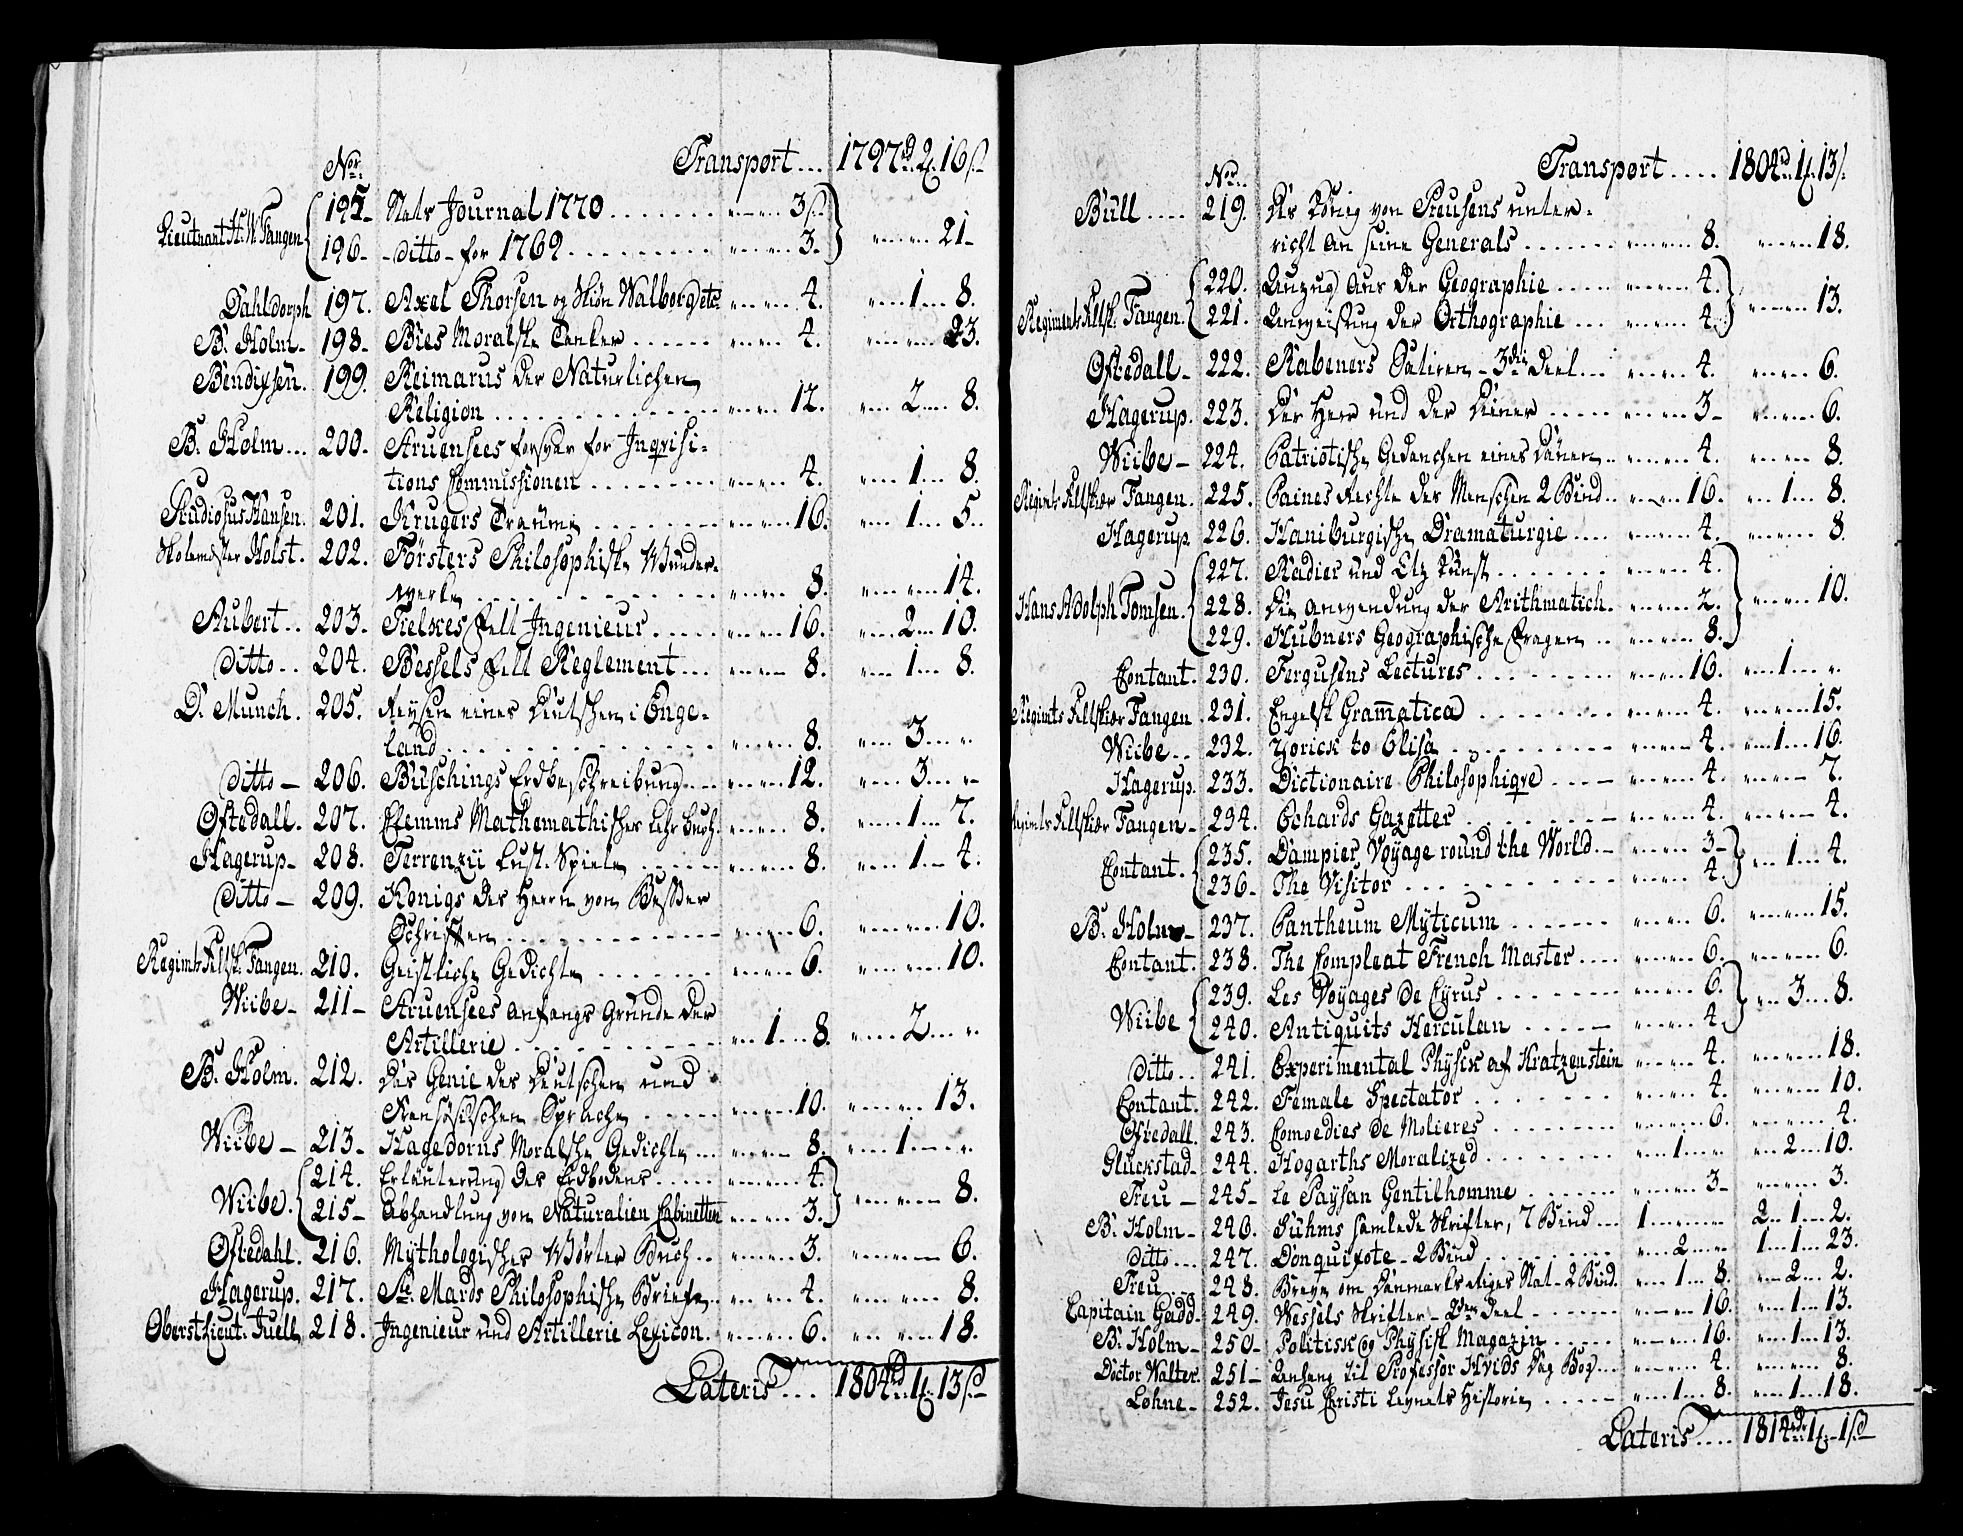 Transport ... 1797d. 2f. 16ß
Nor.
Lieutnant H. W. Fangen { 195 Stats Journal 1770 ....... " — " — 3ß } " — " — 21 –
196 – ditto – for 1769 ........ " — " — 3.
Dahldorph 197. Axel Thorsen og Skiön Walborg etc " — " — 4. " — 1 — 8.
B. Holm – 198 – Bies Moralske Tanker ...... " — " — 4. " — " — 23.
Bendixsen. 199. Reimarus der Naturlichen
Religion ............ " — " — 12. " — 2 — 8.
B. Holm ... 200. Struensees forsvar for Inqvisi-
tions Commissionen ........ " — " — 4. " — 1 — 8.
Studiosus Hansen. 201. Krugers Traüme ........ " — " — 16. " — 1 — 5.
Skolemester Holst. 202. Försters Philosophiske Wunder-
werke ............ " — " — 8. " — " — 14.
Aubert .. 203. Fielxes Felt Ingenieur ..... " — " — 16. " — 2 — 10.
ditto .. 204. Bessels Felt Reglement .... " — " — 8. " — 1 — 8.
D. Munch. 205. Reysen eines Deutschen i Enge-
land ............ " — " — 8. " — 3 — "
ditto – 206. Büschings Erdbeschreibung ... " — " — 12. " — 3 — "
Oftedall. 207. Clemms Mathemathisches Lehr Buch. " — " — 8. " — 1 — 7.
Hagerup – 208. Terrenzii Lust. Spiele ...... " — " — 8. " — 1 — 4.
ditto – 209. Königs des Herrn von Besser
Schriften ............ " — " — 6. " — " — 10.
Regimts Feltsk. Fangen. 210. Geistliche Gedichte ....... " — " — 6. " — " — 10.
Wiibe – 211 – Struensees Anfangs Gründe der
Artillerie ............ " — 1 — 8. " — 2 — "
B. Holm. 212. Das Genie der Deutschen und
Fransösischen Sprache ..... " — " — 10. " — " — 13.
Wiibe – 213 – Hagedorns Moralsche Gedichte ... " — " — 8. " — 1 — "
Wiibe. { 214. Erläuterung des Erdbodens ..... " — " — 4. } " — " — 8.
215 – Abhandlung von Naturalien Cabinetten " — " — 3.
Oftedahl. 216. Mythologisches Wörter Buch .. " — " — 3. " — " — 6.
Hagerup. 217. Ste. Mards Philosophische Briefe .. " — " — 4. " — " — 8.
Oberst Lieut. Juell 218. Ingenieur und Artillerie Lexicon. " — " — 6. " — " — 18.
Lateris ... 1804d. 1f. 13ß
Transport .... 1804d. 1f. 13ß
Nor.
Büll .... 219. Des König von Preusens unter-
richt an seine Generals ...... " — " — 8. " — " — 18.
Regiments Feltsk. Fangen. { 220. Auszug aus der Geographie ..... " — " — 4. } " — " — 13.
221. Anweisung der Orthographie ... " — " — 4.
Oftedall – 222. Rabeners Satiren – 3die Deel ... " — " — 4. " — " — 6.
Hagerup. 223. Der Herr und der Diener ..... " — " — 3 – " — " — 6.
Wiibe – 224. Patriotische Gedancken eines Dänen .. " — " — 4. " — " — 8.
Regimts Feltskiær Fangen. 225. Paines Rechte der Menschen 2 Bind .. " — " — 16. " — 1 — 8.
Hagerup. 226. Hamburgische Dramaturgie .... " — " — 4. " — " — 8.
Hans Adolph Tomsen. { 227. Radier und Etz Kunst ....... " — " — 4. } " — " — 10.
228. Die Anwendung der Arithmatich. " — " — 2.
229. Hübners Geographische Fragen .. " — " — 8.
Contant. 230. Fergusens Lectures ........ " — " — 16. " — 1 — "
Regimts Feltskiær Fangen 231. Engelsk Grammatica ........ " — " — 4. " — " — 15.
Wiibe .. 232. Yorick to Elisa ......... " — " — 4. " — 1 — 16.
Hagerup. 233. Dictionaire Philosophiqve .... " — " — 4. " — " — 7.
Regimts Feltskiær Fangen – 234. Echards Gazetter ........ " — " — 4. " — " — 4.
Contant. { 235. Dampier Voyage round the World .. " — " — 3 – } " — 1 — 4.
236 – The Visitor ........... " — " — 4.
B. Holm – 237. Pantheum Myticum ...... " — " — 6. " — " — 15.
Contant. 238. The Compleat French Master .... " — " — 6. " — " — 6.
Wiibe { 239. Les Voyages de Cyrus ....... " — " — 6. } " — 3 — 8.
240. Antiquits Herculan ...... " — " — 4.
ditto .. 241. Experimental Physix af Kratzenstein " — " — 4. " — " — 18.
Contant. 242. Female Spectator ........ " — " — 4. " — " — 10.
Oftedall. 243. Comoedies de Molieres ....... " — " — 6. " — " — 4.
Glückstad – 244. Hogarths Moralized ....... " — 1 — " " — 2 — 10.
Treu – 245 – Le Paysan Gentilhomme ...... " — " — 3 – " — " — 3.
B. Holm – 246. Suhms samlede Skrifter, 7 Bind ... 1 — " — " 2 — 1 — 2.
ditto ... 247. Donquixote – 2 Bind ........ " — 2 — " 1 — 1 — 23.
Treu .... 248. Breve om Danmarks Riges Stat – 2 Bind. " — 1 — 8. " — 2 — 2.
Capitain Gadd – 249. Wessels Skrifter – 2den Deel ....... " — " — 16. " — 1 — 13.
B. Holm – 250 – Politisk og Physisk Magazin ...... " — " — 16. " — 1 — 13.
Doctor Walter. 251 – Anhang til Professor Hvids Dag Bog ... " — " — 4. " — " — 8.
Lohne – 252. Jesu Christi Levnets Historie ...... " — 1 — 8. " — 1 — 18.
Lateris .... 1814d. 1f. 1ß